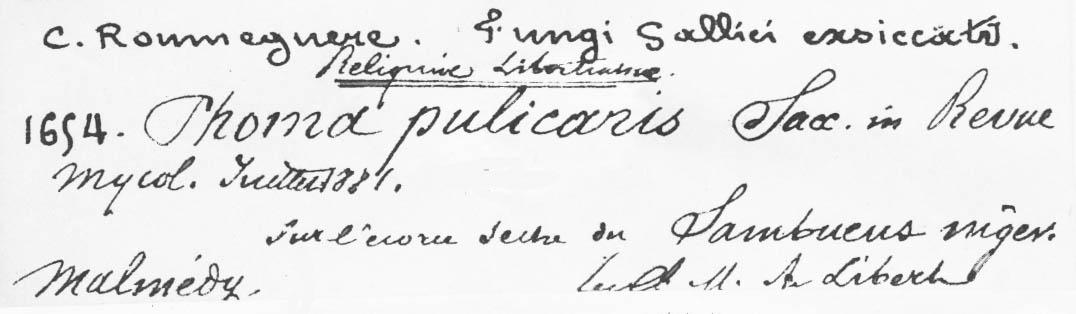 C. Roumeguere. Fungi Gallici exsiccati.
Reliquiae Libertianae.
1654. Phoma pulicaris Sacc. in Revue
Mycol. Juillet 1881.
sur l'écorce seche du Sambucus niger.
Malmédy. M. A. Libert